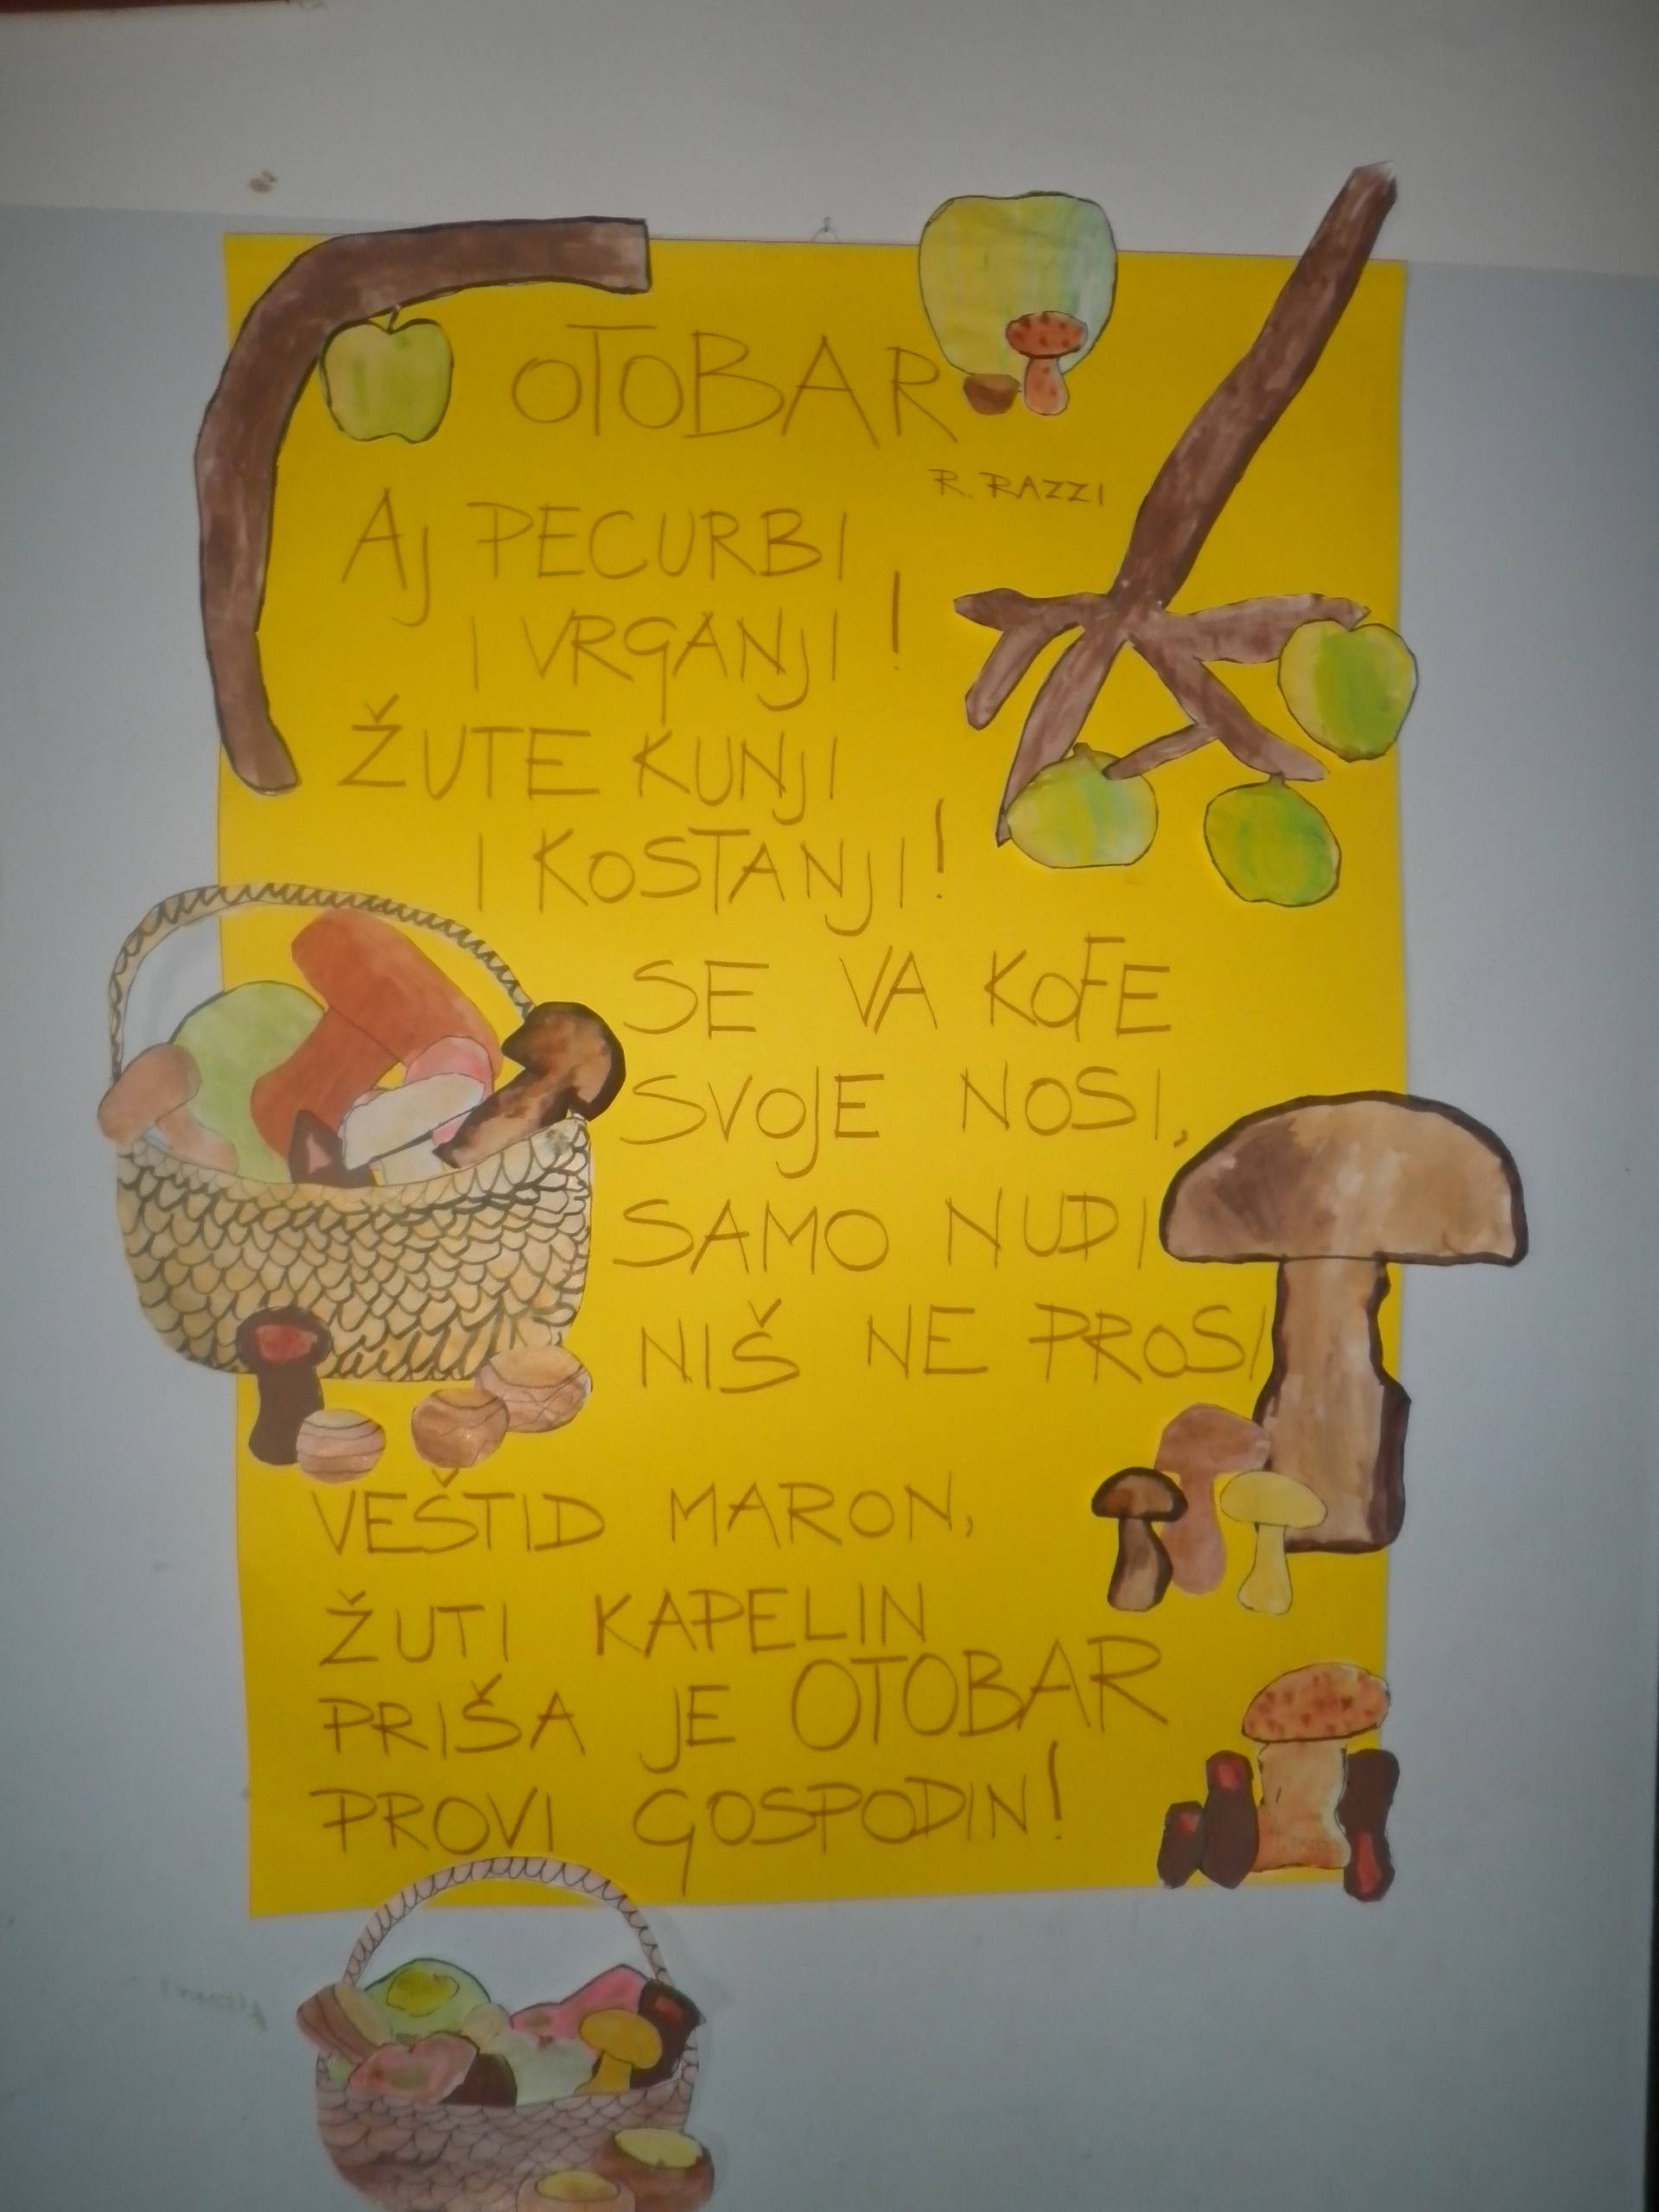 OTOBAR
R. RAZZI
AJ PECURBI
I VRGANJI!
ŽUTE KUNJI
I KOSTANJI!
SE VA KOFE
SVOJE NOSI,
SAMO NUDI
NIŠ NE PROSI
VEŠTID MARON,
ŽUTI KAPELIN
PRIŠA JE OTOBAR
PROVI GOSPODIN!